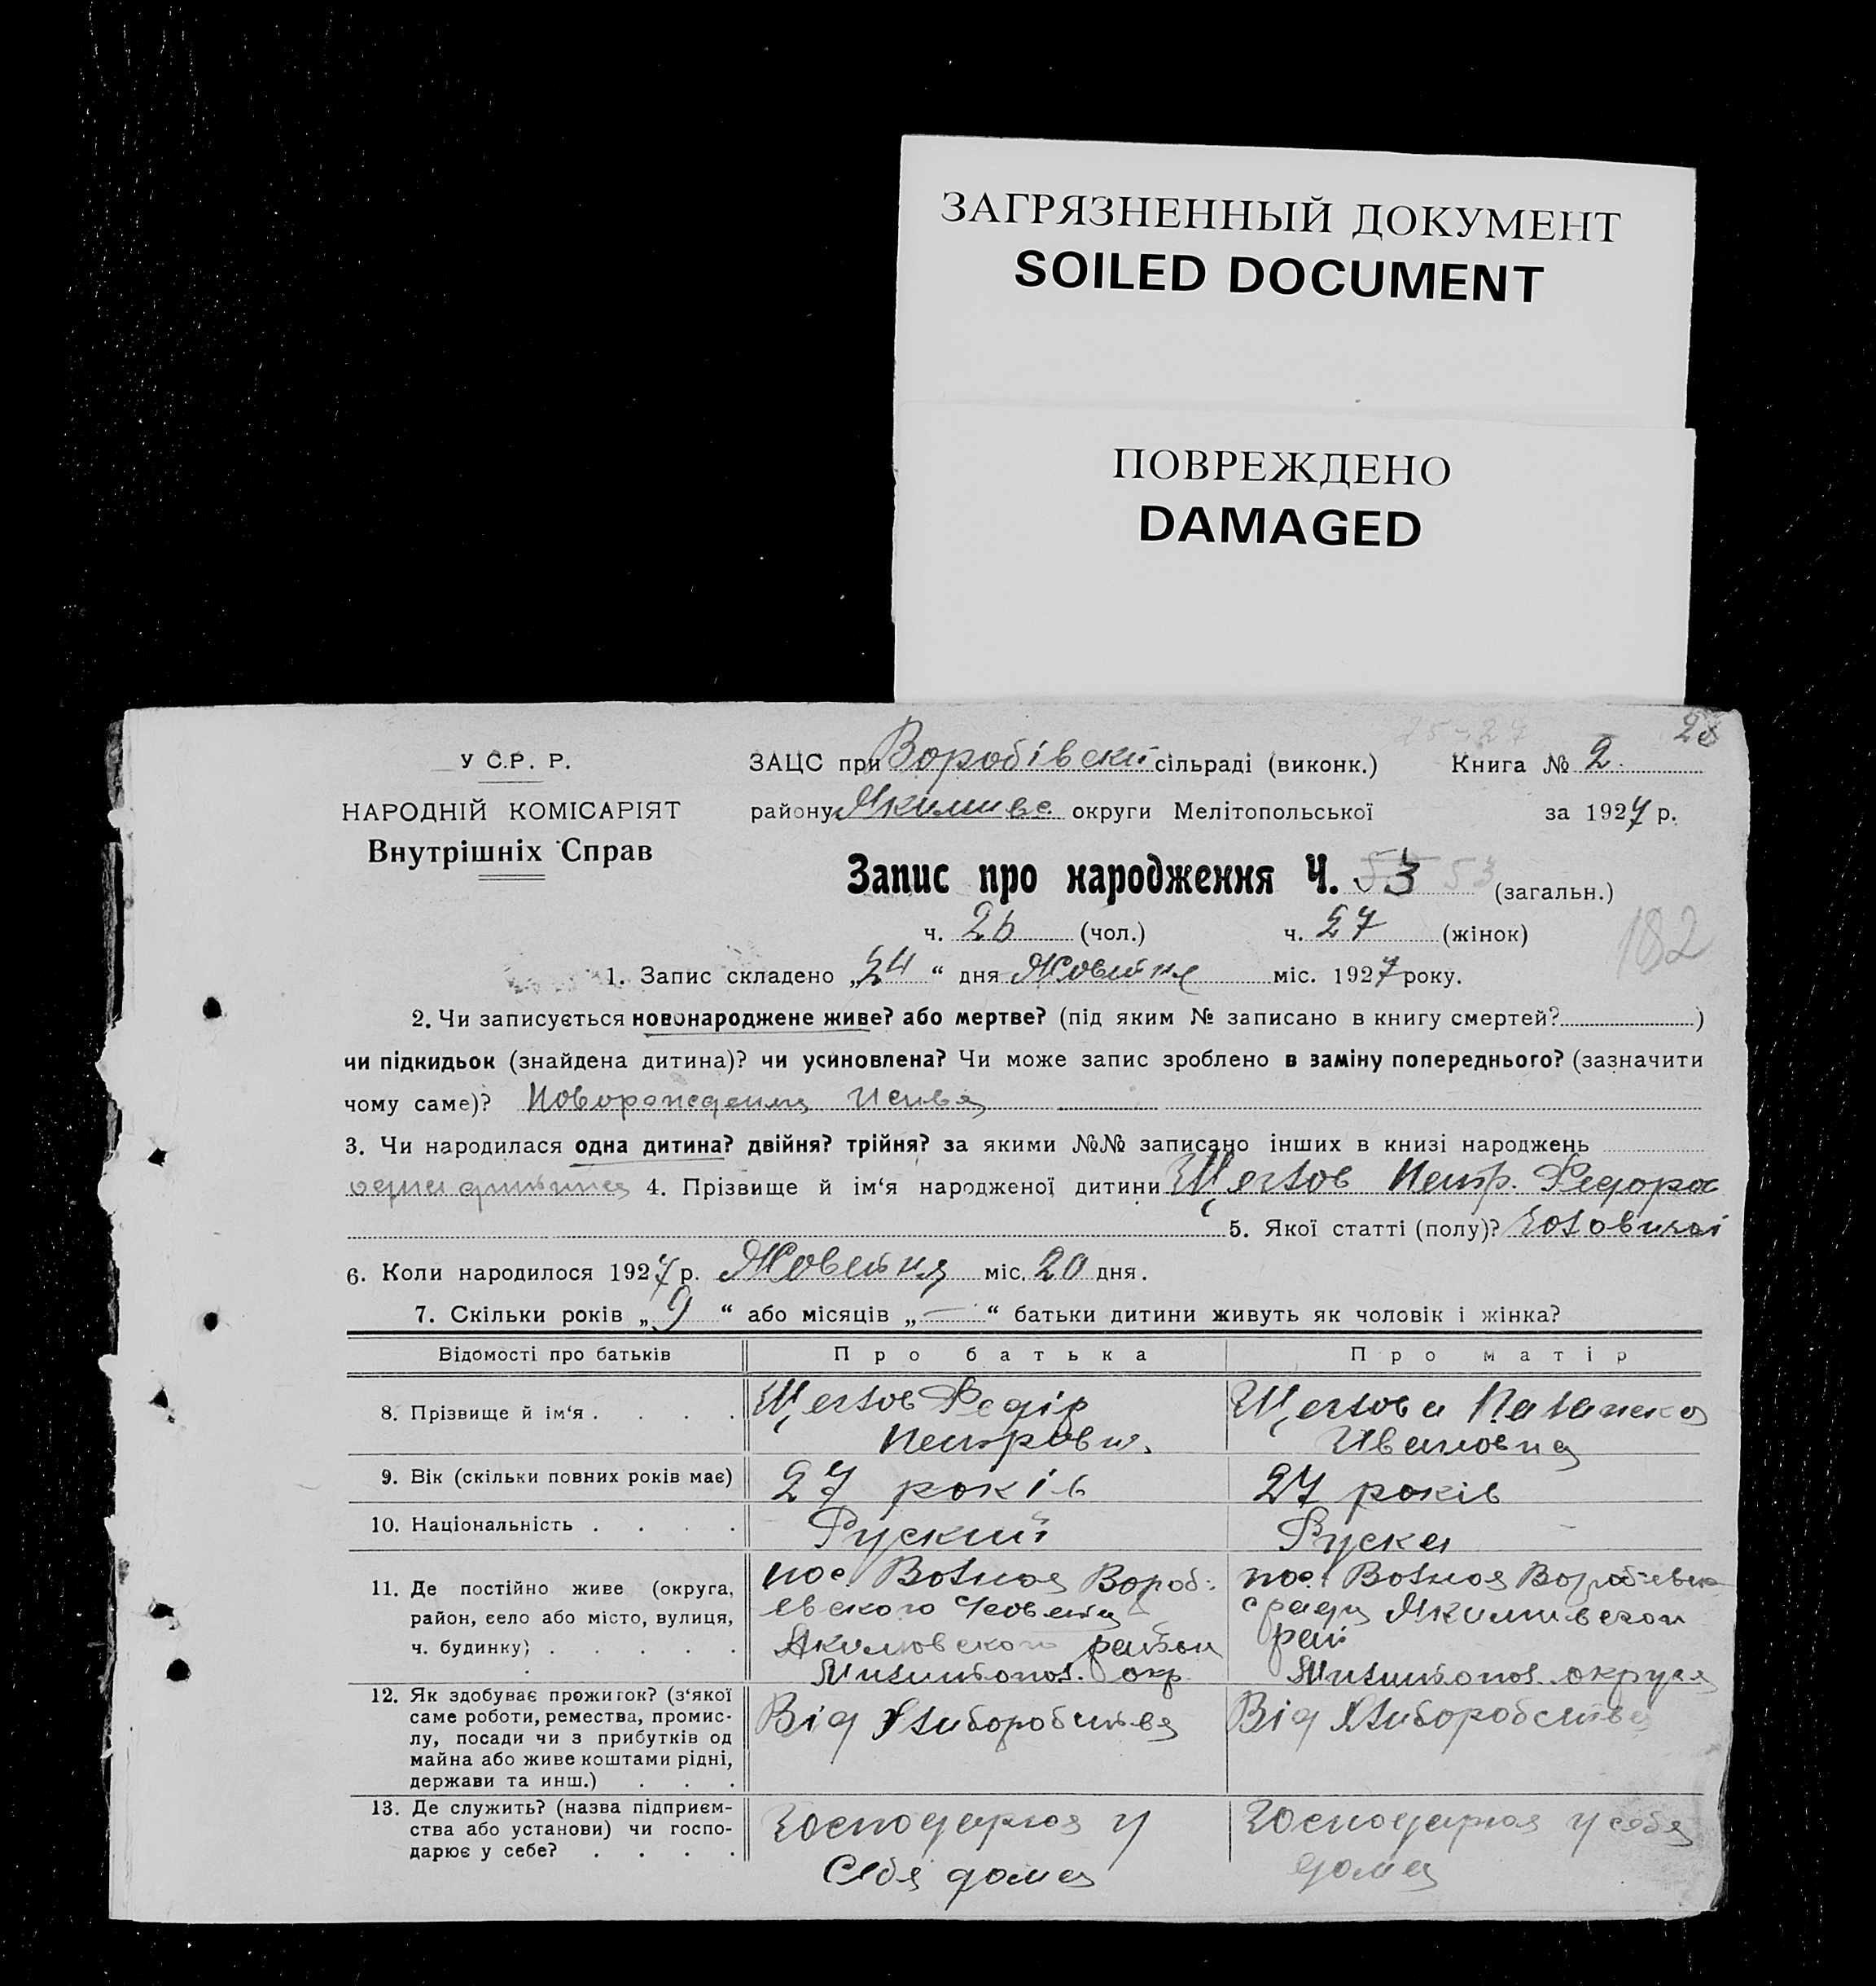 ЗАГРЯЗНЕННЫЙ ДОКУМЕНТ
SOILED DOCUMENT
ПОВРЕЖДЕНО
DAMAGED
25-27 28
У С.Р. Р. ЗАЦС при Воробівскій сільраді (виконк.) Книга № 2.
НАРОДНІЙ КОМІСАРІЯТ району Якимивс. округи Мелітопольської за 1927 р.
Внутрішніх Справ
Запис про народження Ч. 53 53 (загальн.)
ч. 26 (чол.) ч. 27 (жінок)
182
1. Запис складено „24 “ дня Жовтня міс. 1927 року.
2. Чи записується новонароджене живе? або мертве? (під яким № записано в книгу смертей? )
чи підкидьок (знайдена дитина)? чи усиновлена? Чи може запис зроблено в заміну попереднього? (зазначити
чому саме)?
3. Чи народилася одна дитина? двійня? трійня? за якими №№ записано інших в книзі народжень
одна дитина 4. Прізвище й ім‘я народженої дитини Щеглов Петр. Федоров
5. Якої статті (полу)?
6. Коли народилося 1927 р. Жовтня міс. 20 дня.
7. Скільки років „ 9 “ або місяців „ — “ батьки дитини живуть як чоловік і жінка?
Відомості про батьків Про батька Про матір
8. Прізвище й ім‘я . . . . Щеглов Федір Щеглова
Петрович. Ивановна
9. Вік (скільки повних років має) 27 років 27 років
10. Національність . . . . Руский Руска
11. Де постійно живе (округа, пос. Вольноя Вороб- пос. Вольноя Воробьевск
район, село або місто, вулиця, евского сради Якимивскои
ч. будинку) . . . . . Якимовского район рай
Милитопол. окр. Милитопол. округа
12. Як здобуває прожиток? (з‘якої Від Хлиборобства Від Хлиборобства
саме роботи, ремества, промис-
лу, посади чи з прибутків од
майна або живе коштами рідні,
держави та инш.) . . .
13. Де служить? (назва підприєм- Господарюя у Господарюя у себя
ства або установи) чи госпо- Себя дома дома
дарює у себе? . . . .